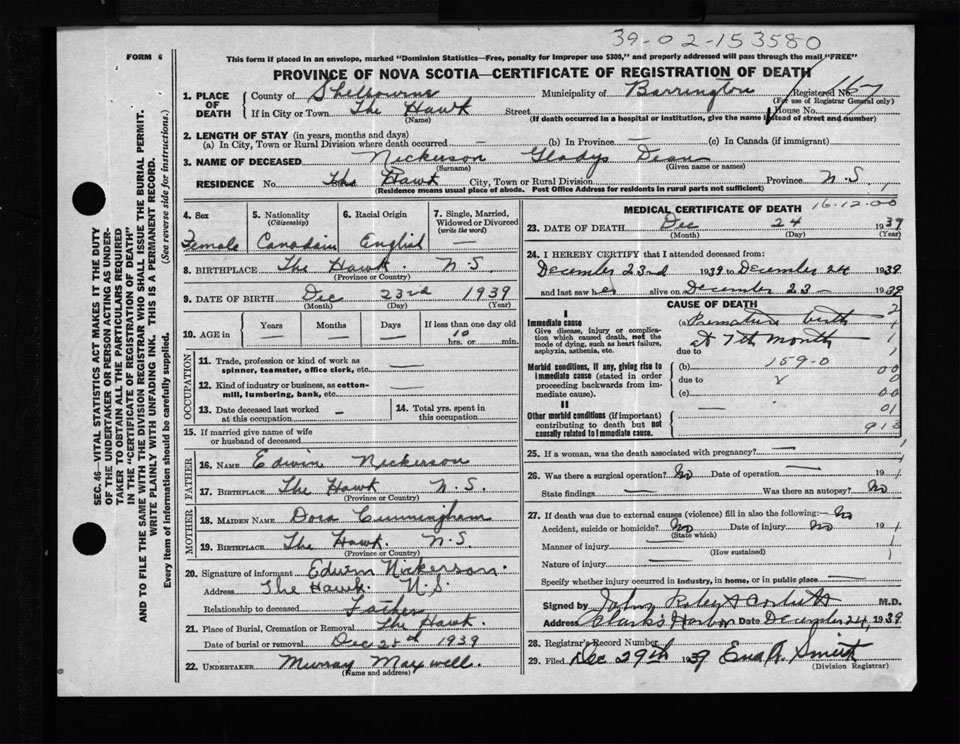 39-02-153580
FORM 6
This form if placed in an envelope, marked "Dominion Statistics—Free, penalty for improper use $300," and properly addressed will pass through the mail "FREE"
PROVINCE OF NOVA SCOTIA—CERTIFICATE OF REGISTRATION OF DEATH
1. PLACE OF DEATH County of Shelburne Municipality of Barrington Registered No. 167
(For use of Registrar General only)
If in City or Town The Hawk Street House No.
(Name) (If death occurred in a hospital or institution, give the name instead of street and number)
2. LENGTH OF STAY (in years, months and days)
(a) In City, Town or Rural Division where death occurred — (b) In Province — (c) In Canada (if immigrant)
3. NAME OF DECEASED Nickerson Gladys Dean
(Surname) (Given name or names)
RESIDENCE No. The Hawk City, Town or Rural Division Province N.S.
(Residence means usual place of abode. Post Office Address for residents in rural parts not sufficient)
4. Sex 5. Nationality (Citizenship) 6. Racial Origin 7. Single, Married, Widowed or Divorced (write the word)
Female Canadain English —
8. BIRTHPLACE The Hawk. N.S.
(Province or Country)
9. DATE OF BIRTH Dec 23rd 1939
(Month) (Day) (Year)
10. AGE in Years Months Days If less than one day old
— — — 10 hrs. or min.
OCCUPATION
11. Trade, profession or kind of work as spinner, teamster, office clerk, etc. —
12. Kind of industry or business, as cotton-mill, lumbering, bank, etc. —
13. Date deceased last worked at this occupation — 14. Total yrs. spent in this occupation
15. If married give name of wife or husband of deceased
FATHER
16. NAME Edwin Nickerson
17. BIRTHPLACE The Hawk N.S.
(Province or Country)
MOTHER
18. MAIDEN NAME Dora Cunningham
19. BIRTHPLACE The Hawk. N.S.
(Province or Country)
20. Signature of informant Edwin Nickerson.
Address The Hawk. N.S
Relationship to deceased Father
21. Place of Burial, Cremation or Removal The Hawk.
Date of burial or removal Dec 25th 1939
22. UNDERTAKER Murray Maxwell.
(Name and address)
MEDICAL CERTIFICATE OF DEATH 16-12-00
23. DATE OF DEATH Dec 24 1939
(Month) (Day) (Year)
24. I HEREBY CERTIFY that I attended deceased from:
December 23rd 1939 to December 24 1939
and last saw her alive on December 23 — 1939
CAUSE OF DEATH
I
Immediate cause
Give disease, injury or complication which caused death, not the mode of dying, such as heart failure, asphyxia, asthenia, etc.
(a) Premature birth — 2
at 7th month 1
due to 1
Morbid conditions, if any, giving rise to immediate cause (stated in order proceeding backwards from immediate cause).
(b) 159-0 00
due to 0
(c) 00
II
Other morbid conditions (if important) contributing to death but not causally related to immediate cause.
— 01
913
25. If a woman, was the death associated with pregnancy? —
26. Was there a surgical operation? No Date of operation — 19
State findings — Was there an autopsy? No
27. If death due was to external causes (violence) fill in also the following:— No
Accident, suicide or homicide? No Date of injury No 19
(State which)
Manner of injury —
(How sustained)
Nature of injury —
Specify whether injury occurred in industry, in home, or in public place —
Signed by M.D.
Address Clarks Harbor Date December 24, 1939
28. Registrar's Record Number
29. Filed Dec 29th 1939 Smith
(Division Registrar)
SEC. 46—VITAL STATISTICS ACT MAKES IT THE DUTY
OF THE UNDERTAKER OR PERSON ACTING AS UNDER-
TAKER TO OBTAIN ALL THE PARTICULARS REQUIRED
IN THE "CERTIFICATE OF REGISTRATION OF DEATH"
AND TO FILE THE SAME WITH THE DIVISION REGISTRAR WHO SHALL ISSUE THE BURIAL PERMIT.
WRITE PLAINLY WITH UNFADING INK. THIS IS A PERMANENT RECORD.
Every item of information should be carefully supplied. (See reverse side for instructions.)